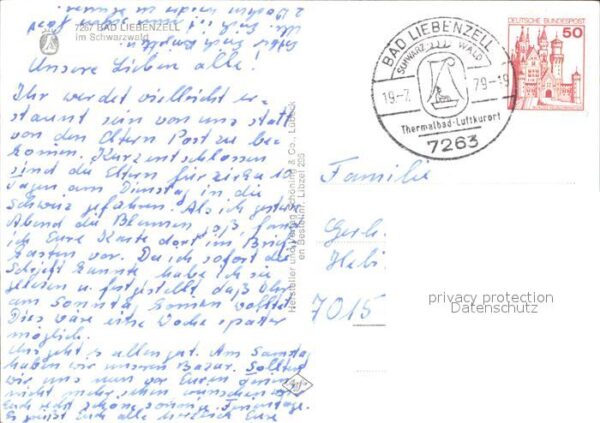 7267 BAD LIEBENZELL
im Schwarzwald
Unsere Lieben alle!
Ihr werdet vielleicht er-
staunt sein von uns statt
von den Eltern Post zu be-
komen. Kurzentschlossen
sind die Eltern für
Tagen am Dienstag in die
Schweiz gefahren. Als ich gestern
Abend die Blumen goß, fand
ich Eure Karte dort im Brief-
kasten vor. Da ich sofort die
Schrift kannte habe ich sie
gelesen u. festgestellt daß Ihr
am Sonntag komen wolltet.
Dies wäre eine Woche später
möglich.
Uns geht's allen gut. Am Samstag
haben wir unseren Bazar. Sollten
wir uns nun vor Eurer
nicht mehr sehen wünschen wir
Euch recht schöne sonnige Ferientage.
Es grüßt Euch alle herzlich Eure
Hersteller und Verlag Schöning & Co., Lübeck
en Bestellnr. Libzel 259
BAD LIEBENZELL
SCHWARZWALD
19.-7. 79-19
Thermalbad-Luftkurort
7263
DEUTSCHE BUNDESPOST
50
Familie
Gerh.
7015
privacy protection
Datenschutz